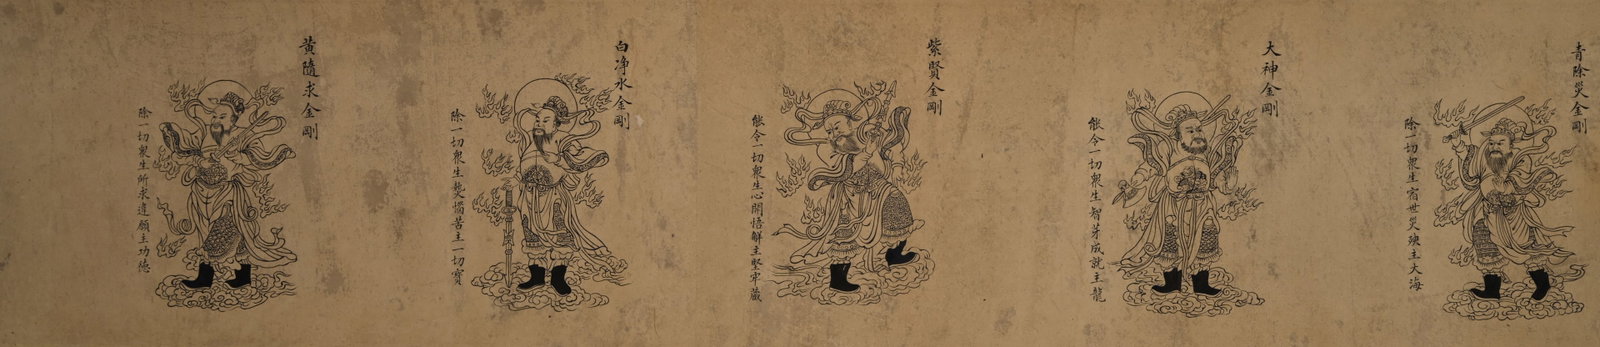 青除災金剛
除一切眾生宿世災殃主大海
大神金剛
能令一切眾生智芽成就主龍
紫賢金剛
能令一切眾生心開悟解主堅牢藏
白淨水金剛
除一切眾生熱惱苦主一切寶
黃隨求金剛
除一切眾生所求遂願主功德